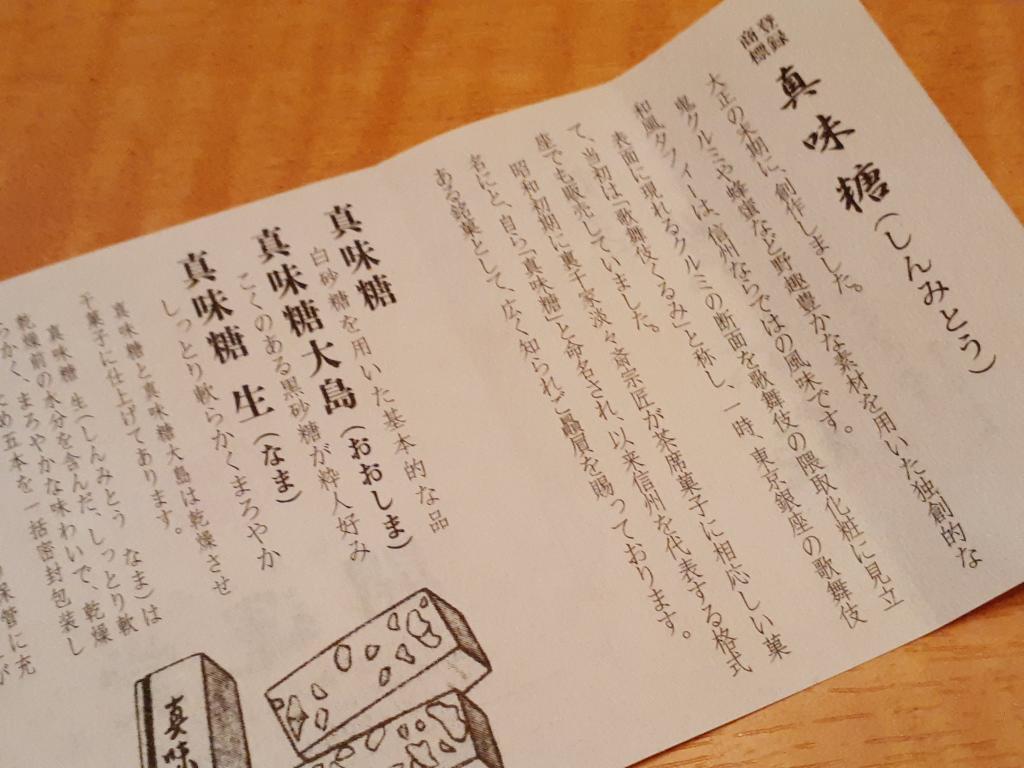 登録
商標
真味糖(しんみとう)
大正の末期に、創作しました。
鬼クルミや蜂蜜など野趣豊かな素材を用いた独創的な
和風タフィーは、信州ならではの風味です。
表面に現れるクルミの断面を歌舞伎の隈取化粧に見立
て、当初は「歌舞伎くるみ」と称し、一時、東京銀座の歌舞伎
座でも販売していました。
昭和初期に裏千家淡々斎宗匠が茶席菓子に相応しい菓
名にと、自ら「真味糖」と命名され、以来信州を代表する格式
ある銘菓として、広く知られご贔屓を賜っております。
真味糖
白砂糖を用いた基本的な品
真味糖大島(おおしま)
こくのある黒砂糖が粋人好み
真味糖 生(なま)
しっとり軟らかくまろやか
真味糖と真味糖大島は乾燥させ
干菓子に仕上げてあります。
真味糖 生(しんみとう なま)は
乾燥前の水分を含んだ、しっとり軟
らかく、まろやかな味わいで、乾燥
ため五本を一括密封包装し
に充
が
真味